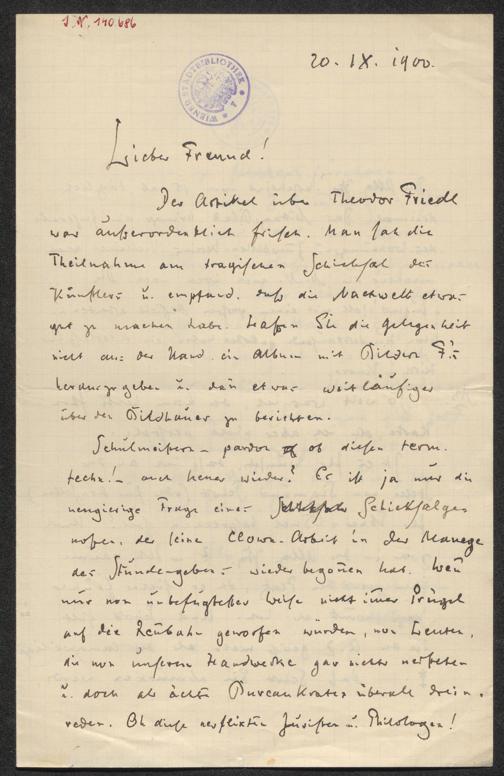 J.N. 140.686
WIENER STADTBIBLIOTHEK
20. IX. 1900.
Lieber Freund!
Der Artikel über Theodor Friedl
war außerordentlich frisch. Man sah die
Theilnahme am tragischen Schicksal des
Künstlers u. empfand, daß die Nachwelt etwas
gut zu machen habe. Lassen Sie die Gelegenheit
nicht aus der Hand, ein Album mit Bildern F's
herauszugeben u. dañ etwas weitläufiger
über den Bildhauer zu berichten.
Schulmeistern – pardon ob diesen term.
techn.! – auch heuer wieder? Es ist ja nur die
neugierige Frage eines Schicksalsge
nossen, der seine Clown-Arbeit in der Manege
des Stundengebens wieder begoñen hat. Weñ
nur von unbefugtester Weise nicht im̄er Prügel
auf die Reñbahn geworfen würden, von Leuten,
die von unserem Handwerke gar nichts verstehen
u. doch als ächte Bureaukraten überall drein-
reden. Oh diese verflixten Juristen u. Philologen!